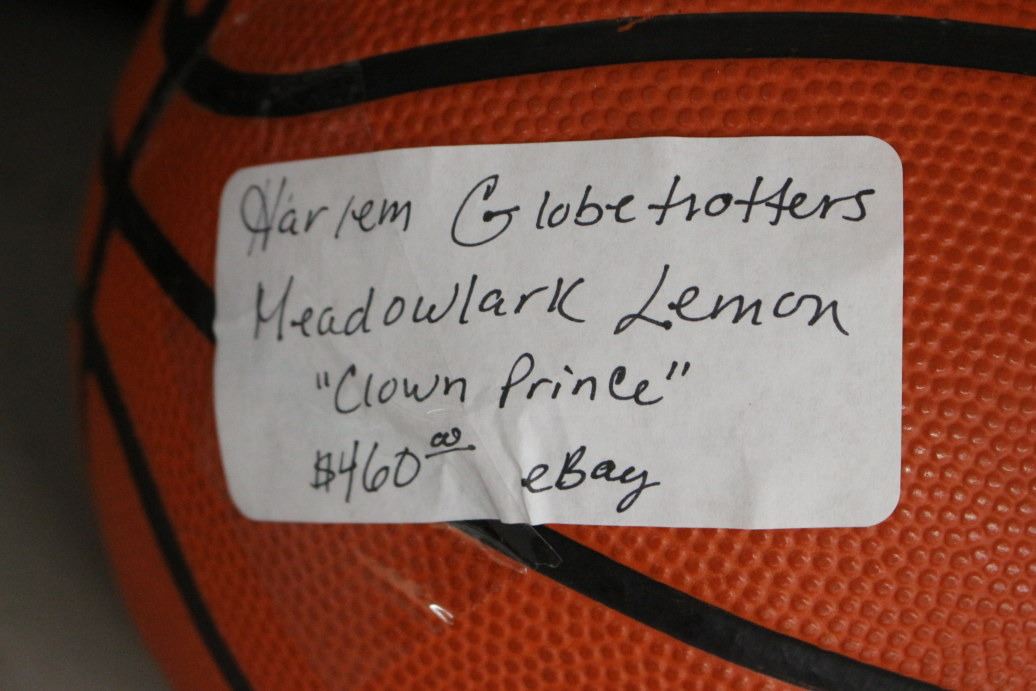 Harlem Globetrotters
Meadowlark Lemon
"Clown Prince"
$460.00 eBay